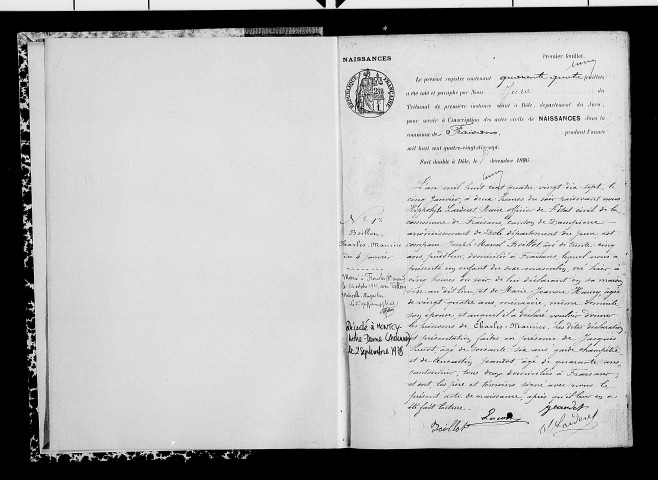 NAISSANCES
Premier feuillet.
Le présent registre contenant quarante quatre feuillets
a été coté et paraphé par Nous Juge du
Tribunal de première instance séant à Dôle, département du Jura,
pour servir à l'inscription des actes civils de NAISSANCES dans la
commune de Fraisans, pendant l'année
mil huit cent quatre-vingt-dix-sept.
Fait double à Dôle, le décembre 1896.
RÉPUBLIQUE FRANÇAISE
N° 1
Boillot
Charles-Maurice
du 4 janvier
Décédé à MONTCY-
Notre-Dame (Ardennes)
le 2 Septembre 1978
L'an mil huit cent quatre-vingt-dix-sept, le
cinq Janvier, à deux heures du soir pardevant nous
Hippolyte Maire officier de l'état civil de la
commune de Fraisans, canton de Dampierre
arrondissement de Dole département du Jura est
comparu Joseph Marcel Boillot âgé de trente cinq
ans, puddleur, domicilié à Fraisans, lequel nous a
présenté un enfant du sexe masculin, né hier à
cinq heures du soir de lui déclarant en sa maison
et de Marie Jeanne âgée
de vingt-quatre ans, ménagère même domicile
son épouse, et auquel il a déclaré vouloir donner
les prénoms de Charles-Maurice. Les dites déclaration
et présentation faites en présence de Jacques
âgé de soixante six ans, garde champêtre
et de Jeandot âgé de quarante ans,
cantonnier, tous deux domiciliés à Fraisans;
et ont les père et témoins signé avec nous le
présent acte de naissance, après qu'il leur en a
été fait lecture.
Jeandot
Boillot